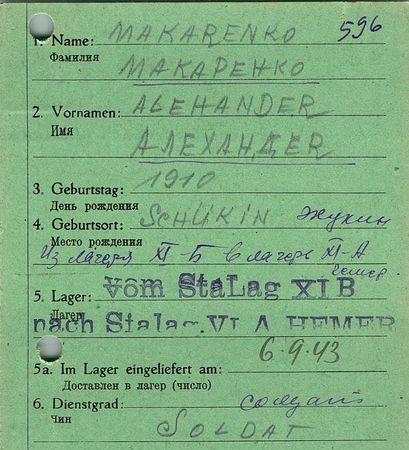 1. Name: MAKARENKO 596
Фамилия МАКАРЕНКО
2. Vornamen: ALEHANDER
Имя АЛЕХАНДЕR
3. Geburtstag: 1910
День рождения
4. Geburtsort: SCHUKIN Жукин
Место рождения
Из лагеря XI-Б в лагерь VI-А
гемер.
5. Lager: vom StaLag XI B
Лагерь nach Stalag. VI A HEMER
6.9.43
5a. Im Lager eingeliefert am:
Доставлен в лагерь (число)
6. Dienstgrad: солдат
Чин SOLDAT